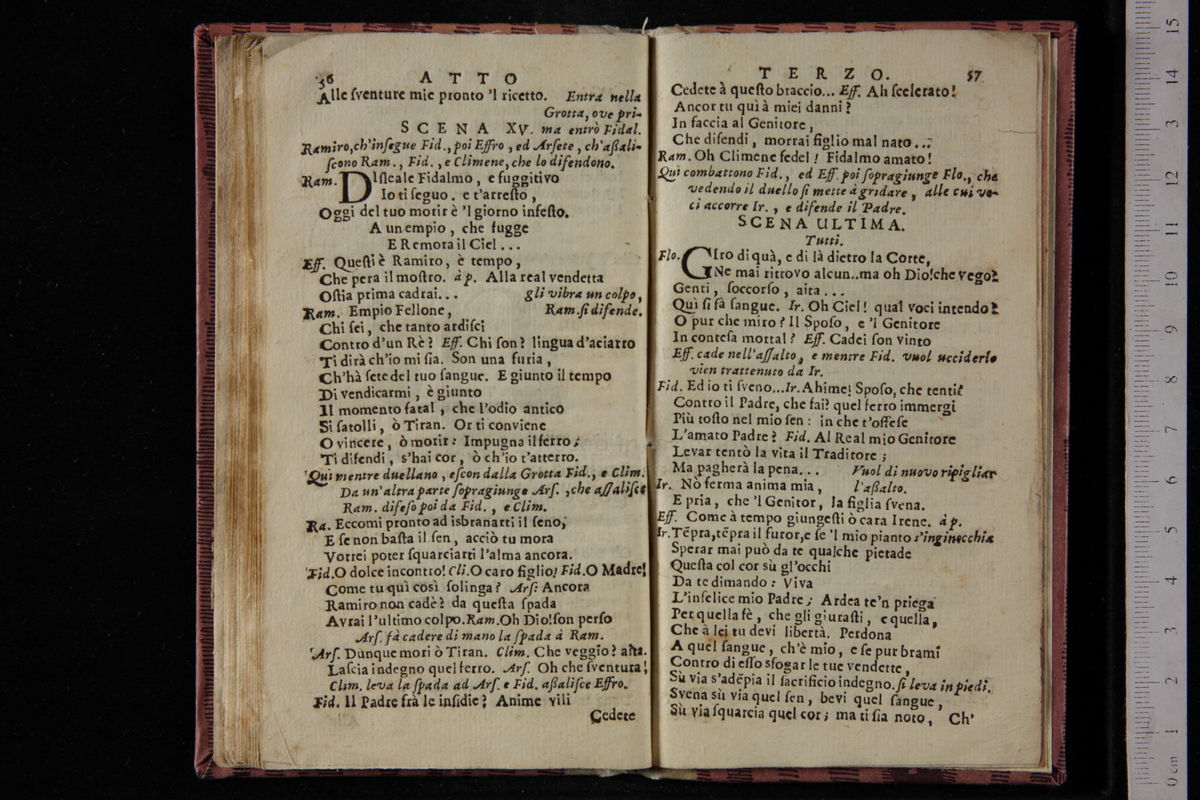 56 ATTO
Alle ſventure mie pronto 'l ricetto. Entra nella
Grotta, ove pri-
SCENA XV. ma entrò Fidal.
Ramiro, ch'inſegue Fid., poi Effro, ed Arſete, ch'aßali-
ſcono Ram., Fid., e Climene, che lo difendono.
Ram. DIſleale Fidalmo, e fuggitivo
Io ti ſeguo. e t'arreſto,
Oggi del tuo morir è 'l giorno infeſto.
A un empio, che fugge
E Remora il Ciel...
Eff. Queſti è Ramiro, è tempo,
Che pera il moſtro. à p. Alla real vendetta
Oſtia prima cadrai... gli vibra un colpo,
Ram. Empio Fellone, Ram. ſi difende.
Chi ſei, che tanto ardiſci
Contro d'un Rè? Eff. Chi ſon? lingua d'aciarro
Ti dirà ch'io mi ſia. Son una furia,
Ch'hà ſete del tuo ſangue. E giunto il tempo
Di vendicarmi, è giunto
Il momento fatal, che l'odio antico
Si ſatolli, ò Tiran. Or ti conviene
O vincere, ò morir: Impugna il ferro;
Ti difendi, s'hai cor, ò ch'io t'atterro.
Quì mentre duellano, eſcon dalla Grotta Fid., e Clim.
Da un'altra parte ſopragiunge Arſ., che aſſaliſce
Ram. difeſo poi da Fid., e Clim.
Ra. Eccomi pronto ad isbranarti il ſeno,
E ſe non baſta il ſen, acciò tu mora
Vorrei poter ſquarciarti l'alma ancora.
Fid. O dolce incontro! Cli. O caro figlio! Fid. O Madre!
Come tu quì così ſolinga? Arſ: Ancora
Ramiro non cadè? da queſta ſpada
Avrai l'ultimo colpo. Ram. Oh Dio! ſon perſo
Arſ. fà cadere di mano la ſpada à Ram.
Arſ. Dunque mori ò Tiran. Clim. Che veggio? aſta.
Laſcia indegno quel ferro. Arſ. Oh che ſventura!
Clim. leva la ſpada ad Arſ. e Fid. aßaliſce Effro.
Fid. Il Padre frà le inſidie? Anime vili
Cedete
TERZO. 57
Cedete à queſto braccio... Eff. Ah ſcelerato!
Ancor tu quì à miei danni?
In faccia al Genitore,
Che difendi, morrai figlio mal nato...
Ram. Oh Climene fedel! Fidalmo amato!
Quì combattono Fid., ed Eff. poi ſopragiunge Flo., che
vedendo il duello ſi mette à gridare, alle cui vo-
ci accorre Ir., e difende il Padre.
SCENA ULTIMA.
Tutti.
Flo. GIro di quà, e di là dietro la Corte,
Ne mai ritrovo alcun.. ma oh Dio! che vego?
Genti, ſoccorſo, aita...
Quì ſi fà ſangue. Ir. Oh Ciel! qual voci intendo?
O pur che miro? Il Spoſo, e 'l Genitore
In conteſa mortal? Eff. Cadei ſon vinto
Eff. cade nell'aſſalto, e mentre Fid. vuol ucciderlo
vien trattenuto da Ir.
Fid. Ed io ti ſveno... Ir. Ahime! Spoſo, che tenti?
Contro il Padre, che fai? quel ferro immergi
Più toſto nel mio ſen: in che t'offeſe
L'amato Padre? Fid. Al Real mio Genitore
Levar tentò la vita il Traditore;
Ma pagherà la pena... Vuol di nuovo ripigliar
Ir. Nò ferma anima mia, l'aßalto.
E pria, che 'l Genitor, la figlia ſvena.
Eff. Come à tempo giungeſti ò cara Irene. à p.
Ir. Tẽpra, tẽpra il furor, e ſe 'l mio pianto s'inginocchia
Sperar mai può da te qualche pietade
Queſta col cor sù gl'occhi
Da te dimando: Viva
L'infelice mio Padre; Ardea te'n priega
Per quella fè, che gli giuraſti, e quella,
Che à lei tu devi libertà. Perdona
A quel ſangue, ch'è mio, e ſe pur brami
Contro di eſſo sfogar le tue vendette,
Sù via s'adẽpia il ſacrificio indegno. ſi leva in piedi.
Svena sù via quel ſen, bevi quel ſangue,
Sù via ſquarcia quel cor; ma ti ſia noto, Ch'
0 cm 1 2 3 4 5 6 7 8 9 10 11 12 13 14 15